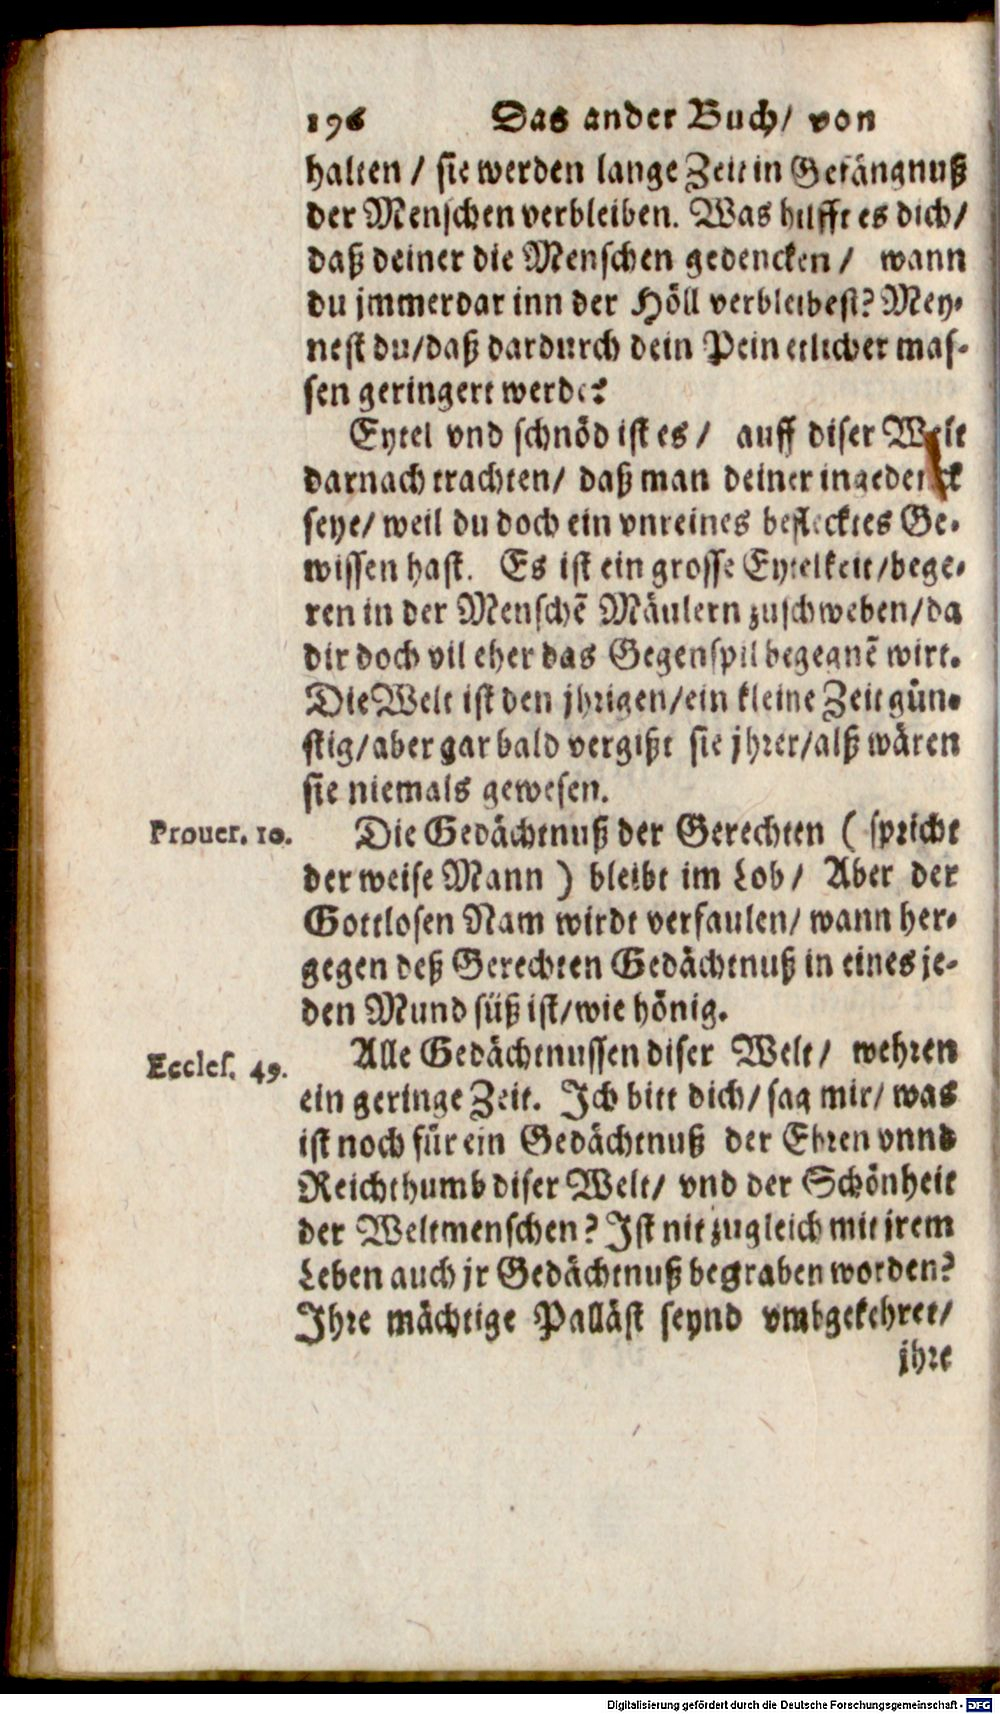 196 Das ander Buch/ von
halten / sie werden lange Zeit in Gefängnuß
der Menschen verbleiben. Was hilfft es dich/
daß deiner die Menschen gedencken / wann
du jmmerdar inn der Höll verbleibest? Mey-
nest du/daß dardurch dein Pein etlicher mas-
sen geringert werde?
Eytel vnd schnöd ist es / auff diser Welt
darnach trachten/ daß man deiner ingedenck
seye/ weil du doch ein vnreines beflecktes Ge-
wissen hast. Es ist ein grosse Eytelkeit/bege-
ren in der Menschē Mäulern zuschweben/da
dir doch vil eher das Gegenspil begegnē wirt.
Die Welt ist den jhrigen/ein kleine Zeit gün-
stig/aber gar bald vergißt sie jhrer/alß wären
sie niemals gewesen.
Prouer. 10. Die Gedächtnuß der Gerechten ( spricht
der weise Mann ) bleibt im Lob/ Aber der
Gottlosen Nam wirdt verfaulen/ wann her-
gegen deß Gerechten Gedächtnuß in eines je-
den Mund süß ist/wie hönig.
Eccles. 49. Alle Gedächtnussen diser Welt/ wehren
ein geringe Zeit. Ich bitt dich/ sag mir/ was
ist noch für ein Gedächtnuß der Ehren vnnd
Reichthumb diser Welt/ vnd der Schönheit
der Weltmenschen? Ist nit zugleich mit jrem
Leben auch jr Gedächtnuß begraben worden?
Ihre mächtige Palläst seynd vmbgekehret/
jhre
Digitalisierung gefördert durch die Deutsche Forschungsgemeinschaft - DFG